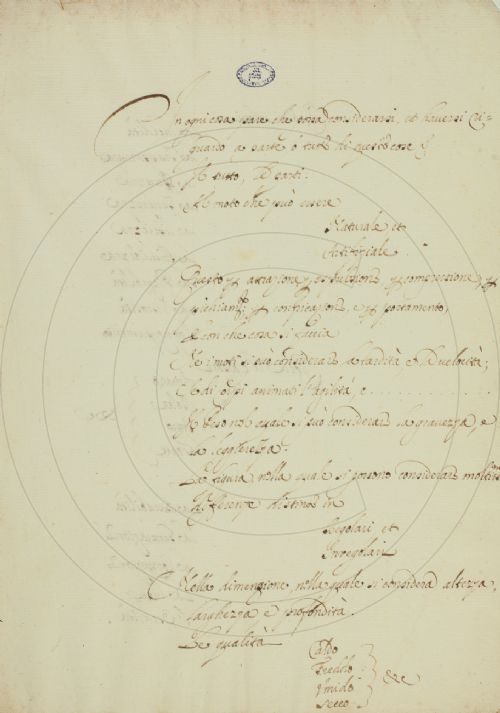 In ogni cosa pare che possa considerarsi, et haversi ri=
guardo a parte ò tutto di queste cose
Il tutto, Le parti.
Il moto che può essere
Naturale et
Artifiziale.
Questo attrazione, espulsione compressione,
e portamento,
e con che cosa si faccia
Ne i moti si può considerare la tardità e La velocità;
E di animati l'agilità, e . . . . . . . . . .
Il Peso nel quale si può considerare la gravezza, e
la leggierezza.
La figura, nella quale si possono considerare
differenze distinte in
Regolari et
Irregolari
Nella dimenzione, nella quale si considera altezza,
larghezza e profondità.
Le qualità
Caldo
Freddo
Umido
Secco